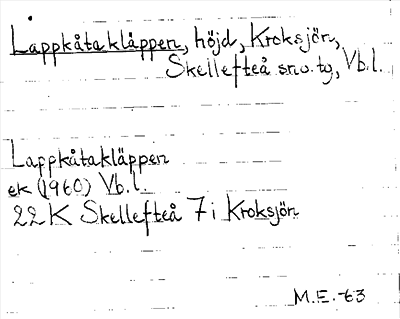 Lappkåtakläppen, höjd, Kroksjön,
Skellefteå sn o. tg, Vb.l.
Lappkåtakläppen
ek (1960) Vb.l.
22K Skellefteå 7 i Kroksjön
M.E. -63